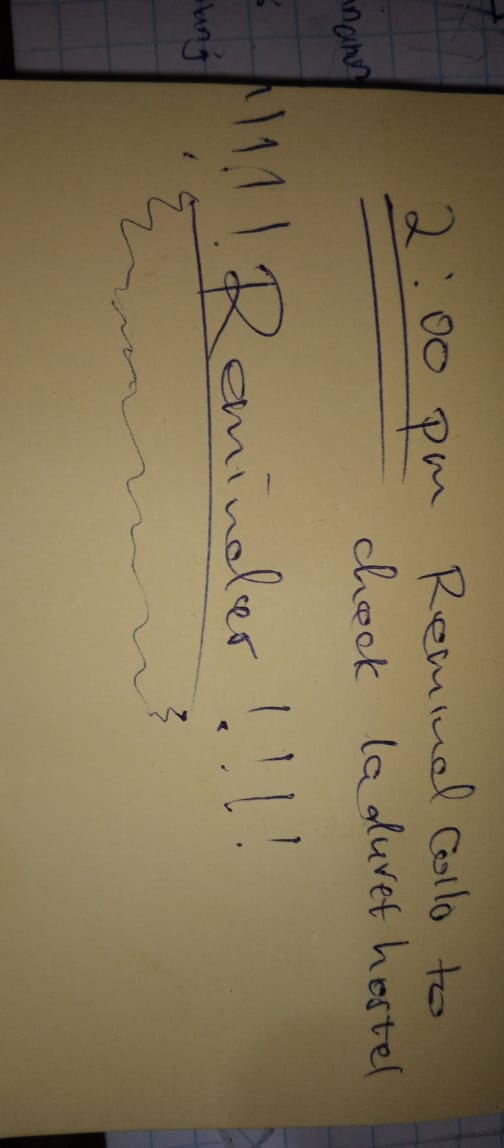 2:00 pm Remind Collo to
check laduvet hostel
!!!! Reminder !!!!